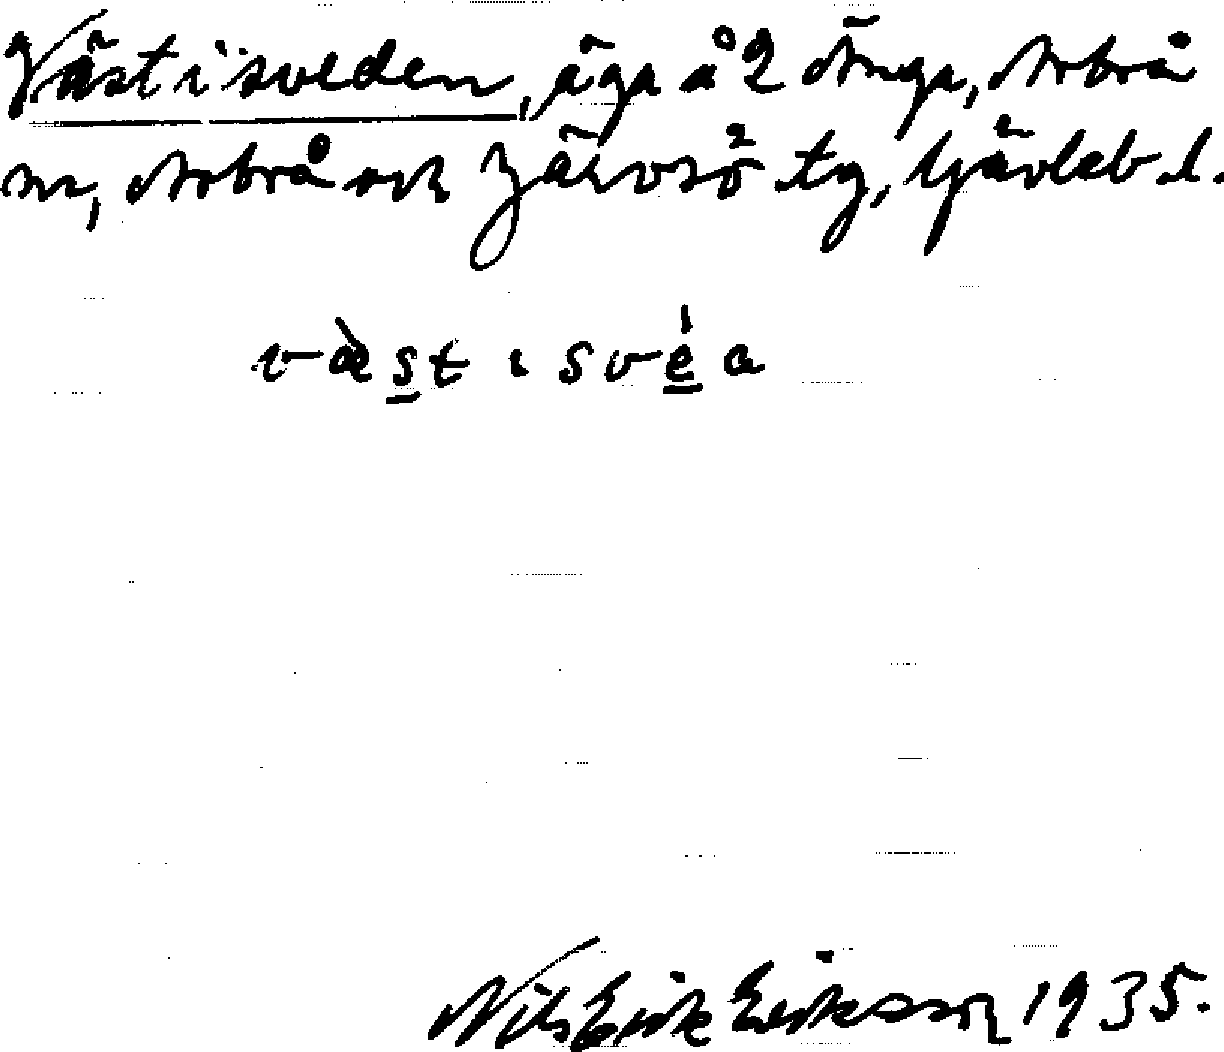 Väst i sveden, äga å 2 Änga, Arbrå
sn, Arbrå och Järvsö tg, Gävleb. l.
væ̀st i svéa
Nils Erik Eriksson 1935.